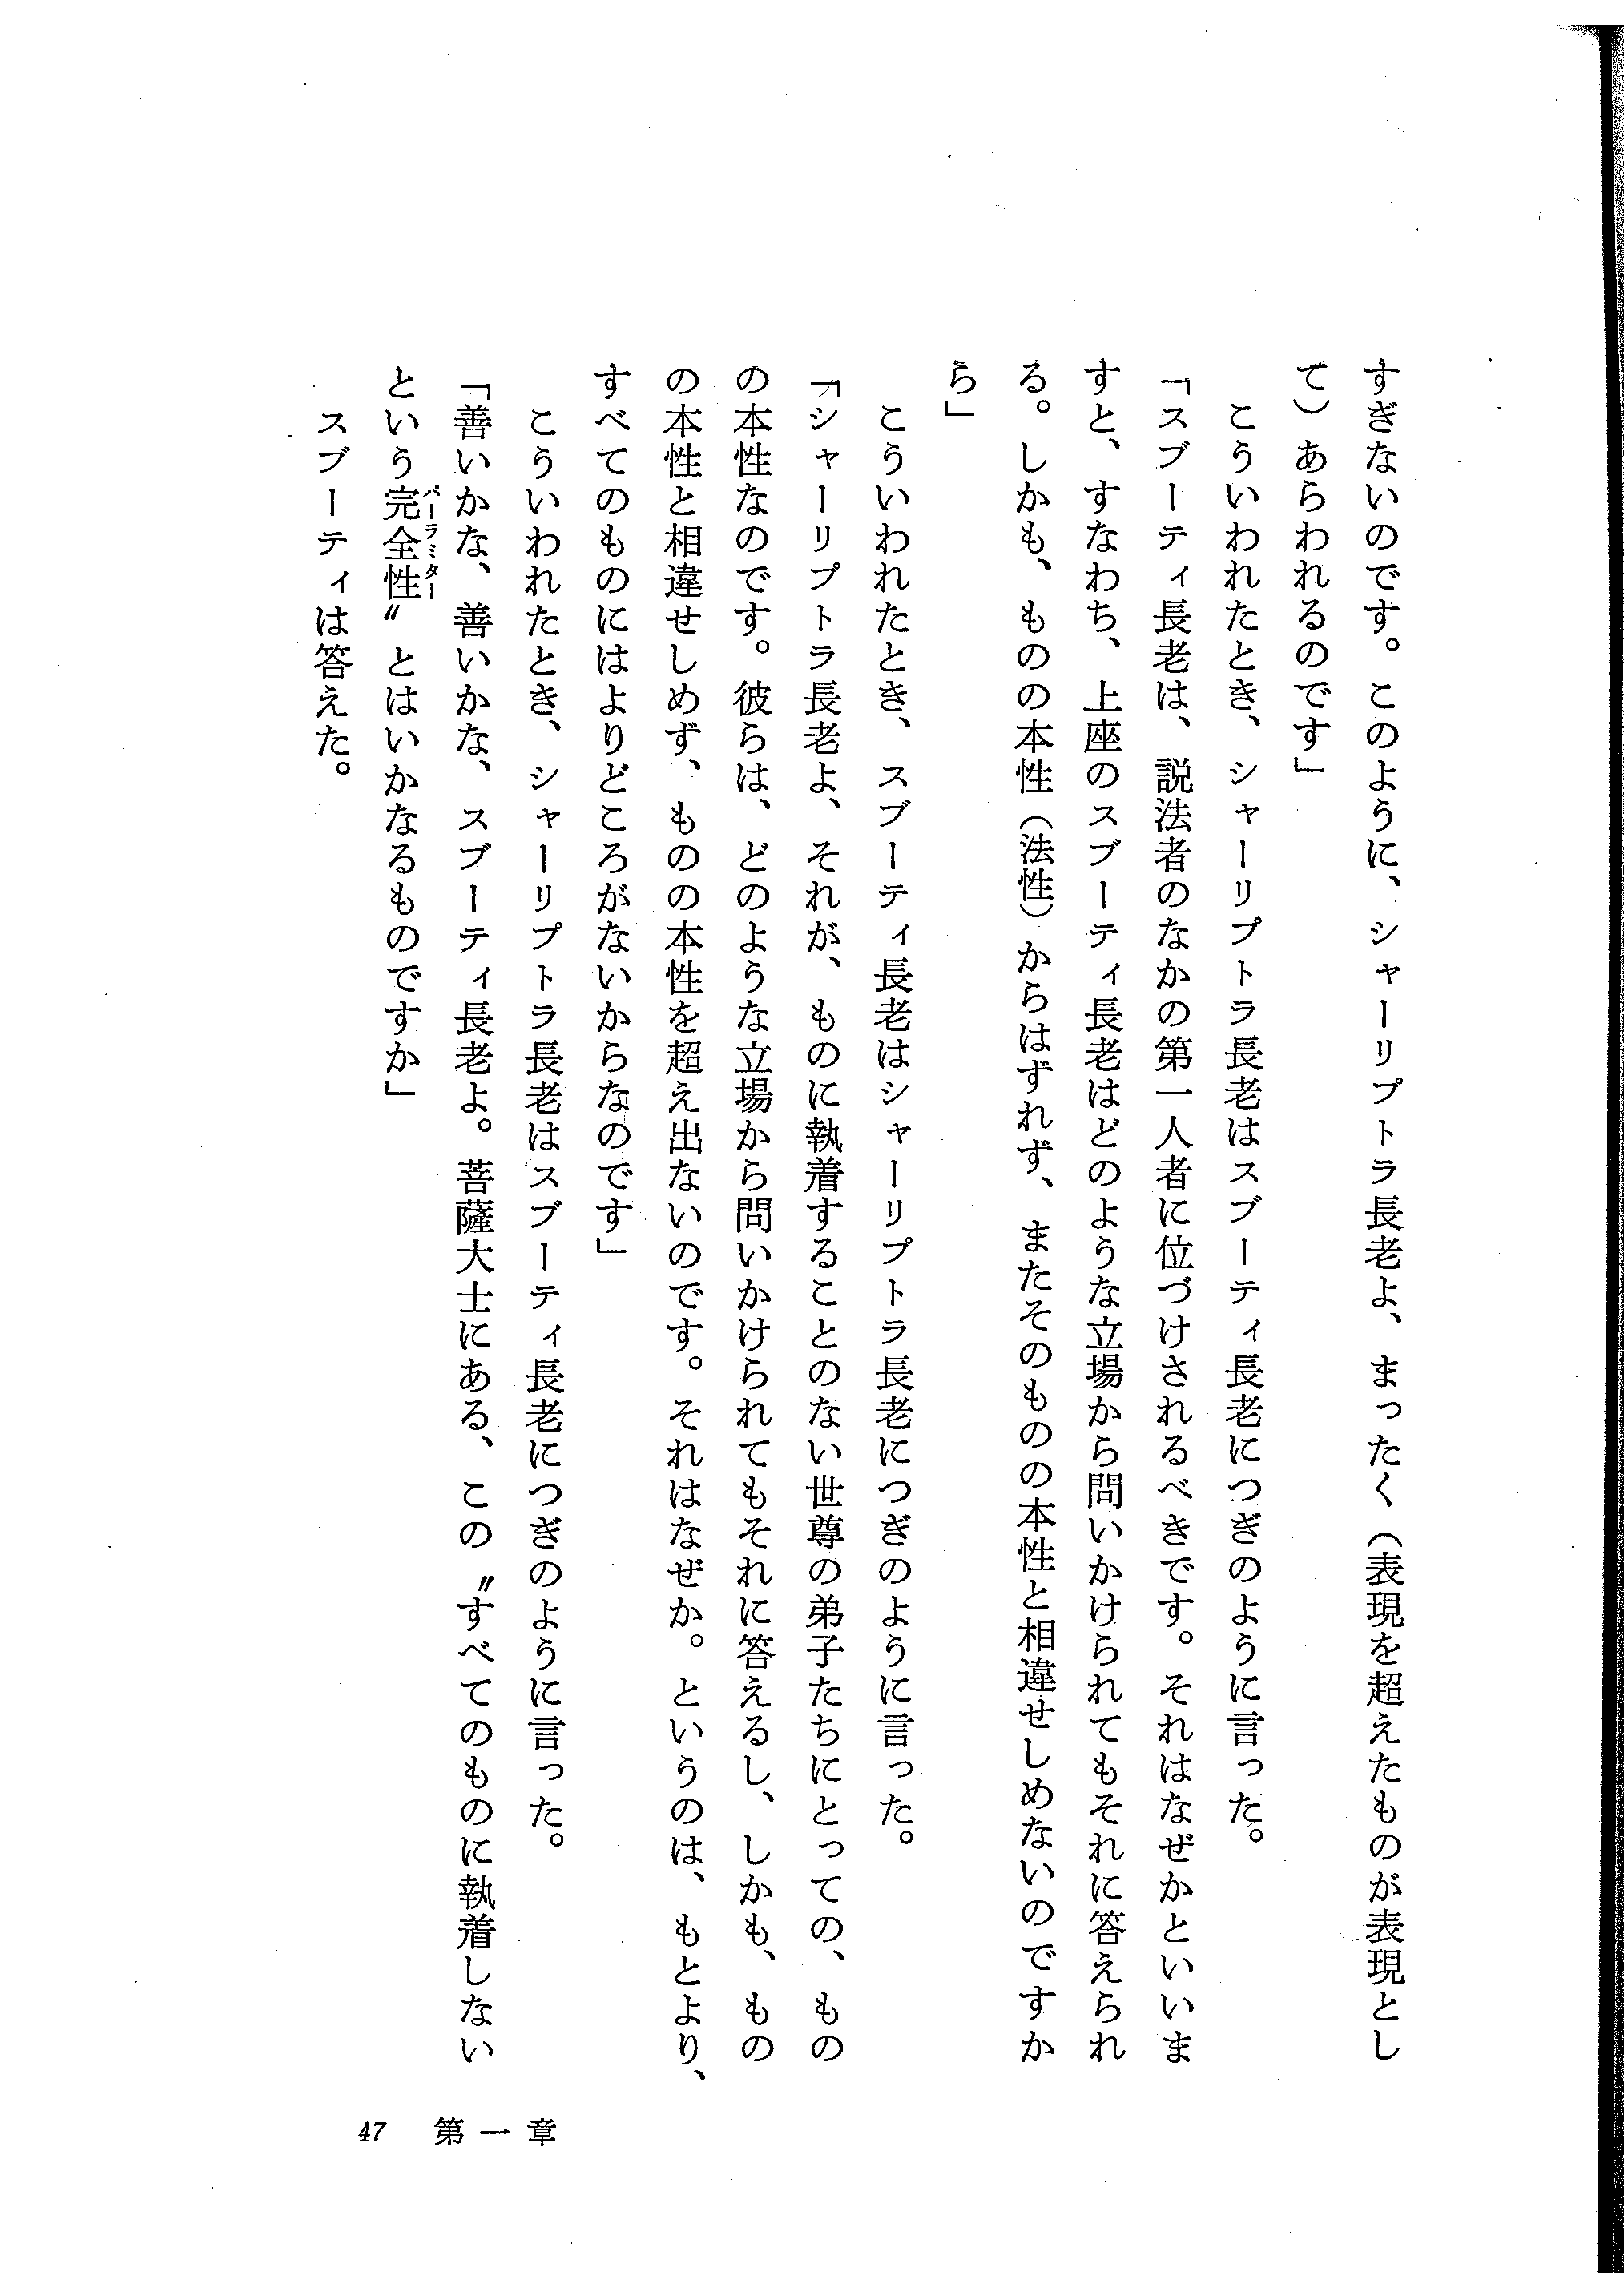 すぎないのです。このように、シャーリプトラ長老よ、まったく（表現を超えたものが表現とし
て）あらわれるのです」
　こういわれたとき、シャーリプトラ長老はスブーティ長老につぎのように言った。
「スブーティ長老は、説法者のなかの第一人者に位づけされるべきです。それはなぜかといいま
すと、すなわち、上座のスブーティ長老はどのような立場から問いかけられてもそれに答えられ
る。しかも、ものの本性（法性）からはずれず、またそのものの本性と相違せしめないのですか
ら」
　こういわれたとき、スブーティ長老はシャーリプトラ長老につぎのように言った。
「シャーリプトラ長老よ、それが、ものに執着することのない世尊の弟子たちにとっての、もの
の本性なのです。彼らは、どのような立場から問いかけられてもそれに答えるし、しかも、もの
の本性と相違せしめず、ものの本性を超え出ないのです。それはなぜか。というのは、もとより、
すべてのものにはよりどころがないからなのです」
　こういわれたとき、シャーリプトラ長老はスブーティ長老につぎのように言った。
「善いかな、善いかな、スブーティ長老よ。菩薩大士にある、この〝すべてのものに執着しない
という完全性〟とはいかなるものですか」
パーラミター
　スブーティは答えた。
47　第一章